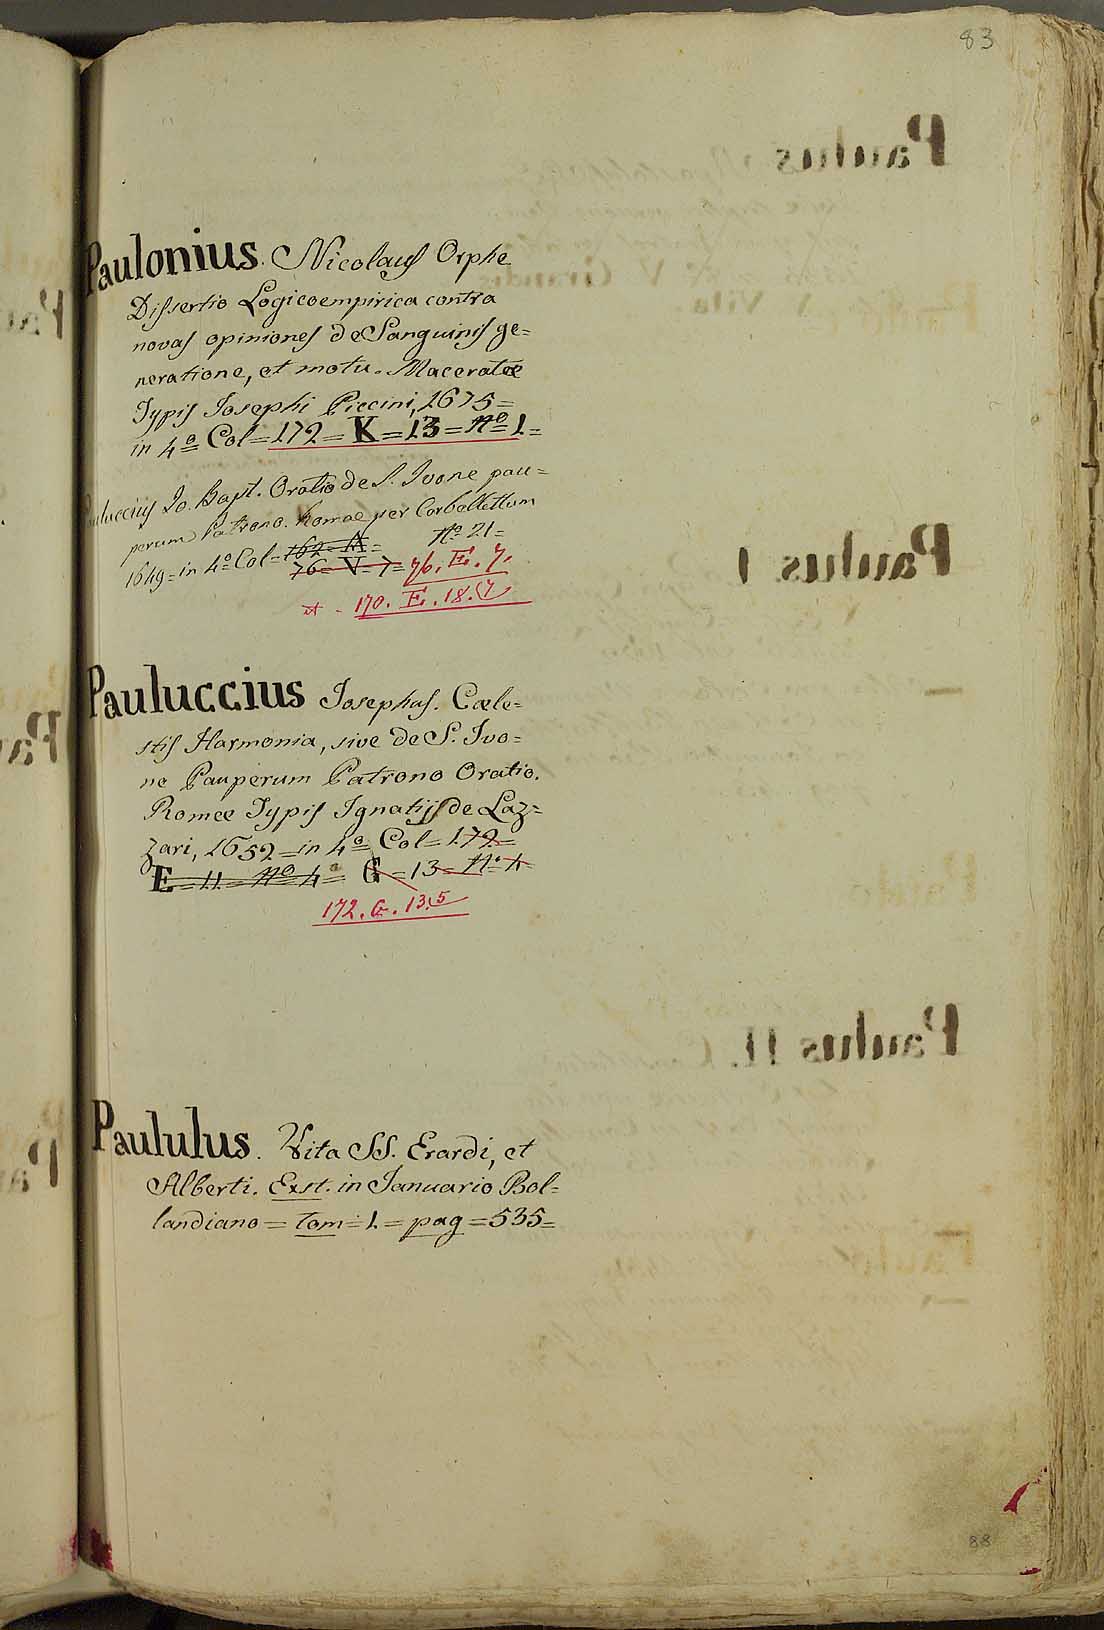 83
Paulonius. Nicolaus Orphe
Dissertio Logicoempirica contra
novas opiniones de Sanguinis ge=
neratione, et motu. Maceratæ
Typis Josephi Piccini, 1675=
in 4º Col=172=K=13=Nº 1=
Pauluccius Jo. Bapt. Oratio de S. Ivone pau=
perum Patrono. Romae per Corbellettum
1649=in 4º Col=162=A= Nº 21=
76=V=7=76. E. 7.
et - 170. E. 18. (7
Pauluccius Josephus. Cæle=
stis Harmonia, sive de S. Ivo=
ne Pauperum Patrono Oratio.
Romæ Typis Ignatij de Laz=
zari, 1652=in 4º Col=172=
E=11=Nº 4= G=13=Nº 4
172. G. 13. 5
Paululus. Vita SS. Erardi, et
Alberti. Exst. in Januario Bol=
landiano=tom=1.=pag=535=
88